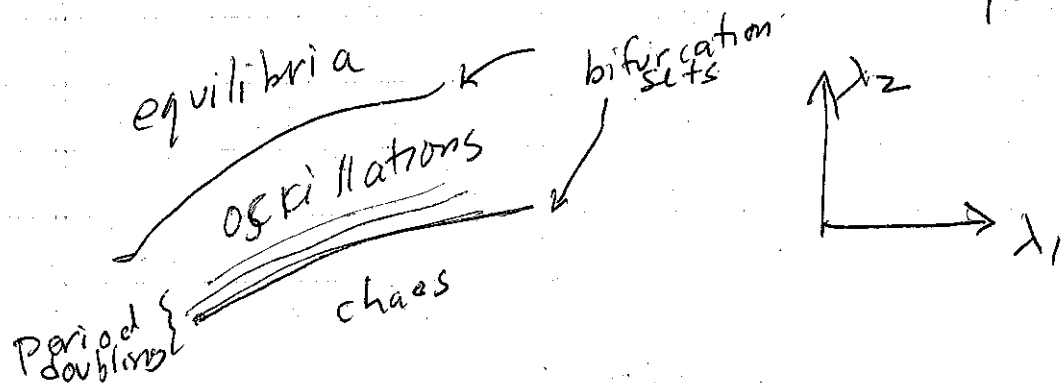 equilibria
bifurcation
sets
λ2
oscillations
λ1
chaos
Period
doubling